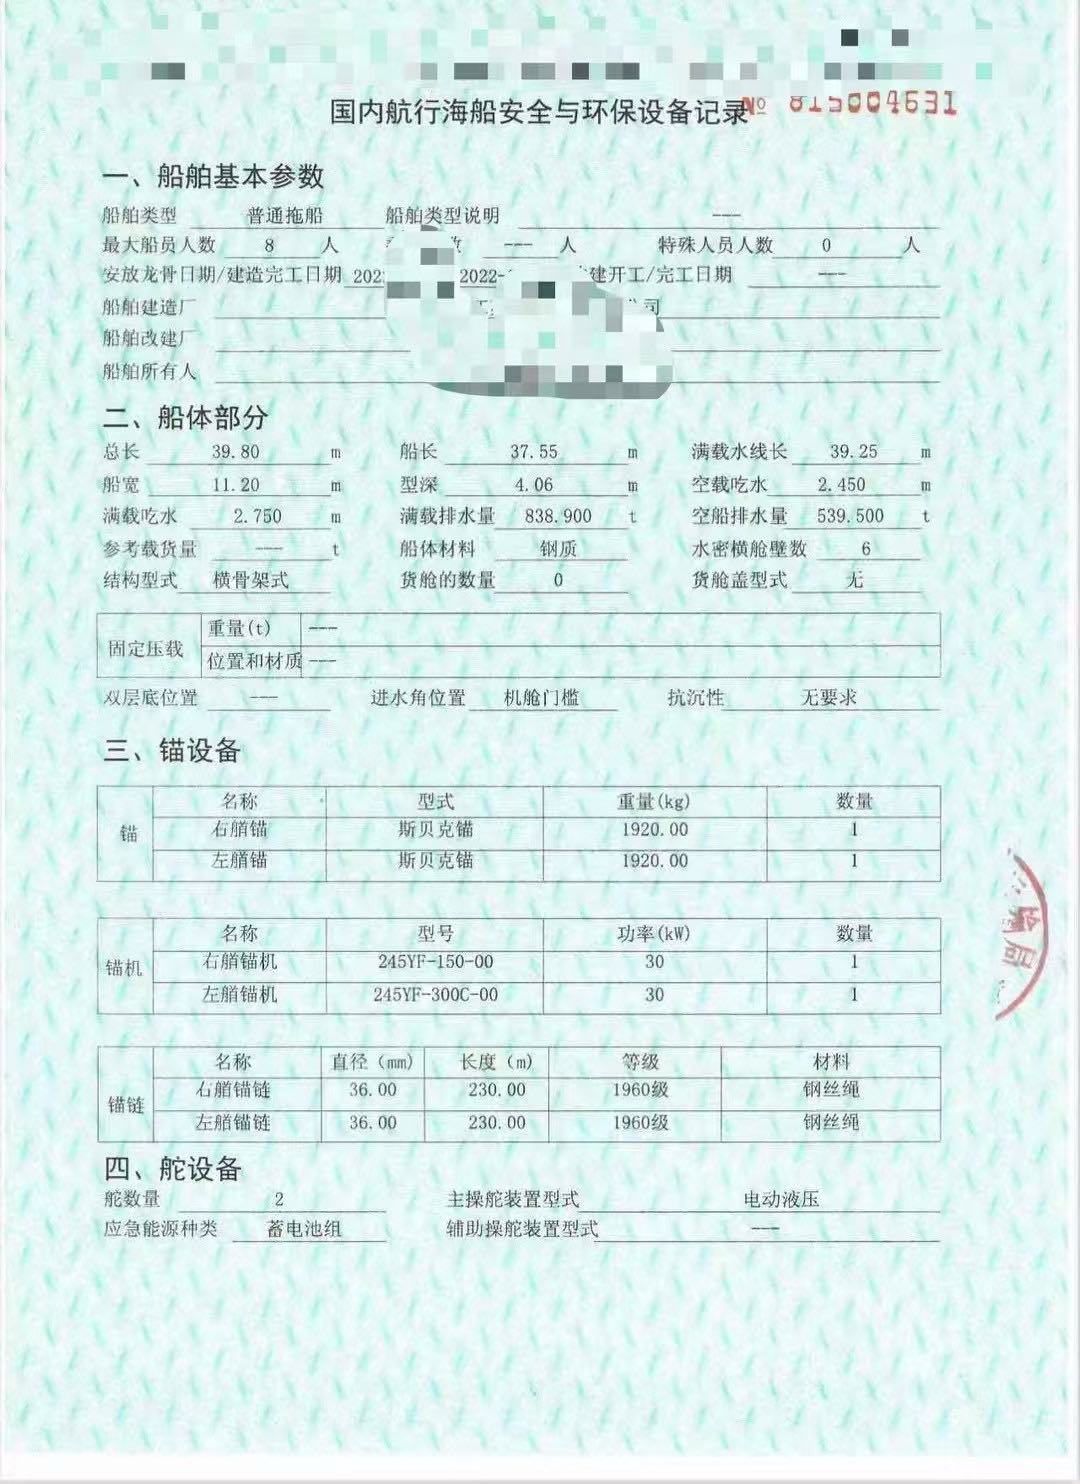 国内航行海船安全与环保设备记录
№ 815004631
一、船舶基本参数
船舶类型 普通拖船 船舶类型说明 ---
最大船员人数 8 人 --- 人 特殊人员人数 0 人
安放龙骨日期/建造完工日期 202 2022- 建开工/完工日期 ---
船舶建造厂 司
船舶改建厂
船舶所有人
二、船体部分
总长 39.80 m 船长 37.55 m 满载水线长 39.25 m
船宽 11.20 m 型深 4.06 m 空载吃水 2.450 m
满载吃水 2.750 m 满载排水量 838.900 t 空船排水量 539.500 t
参考载货量 --- t 船体材料 钢质 水密横舱壁数 6
结构型式 横骨架式 货舱的数量 0 货舱盖型式 无
固定压载 重量(t) ---
位置和材质 ---
双层底位置 --- 进水角位置 机舱门槛 抗沉性 无要求
三、锚设备
锚 名称 型式 重量(kg) 数量
右艏锚 斯贝克锚 1920.00 1
左艏锚 斯贝克锚 1920.00 1
锚机 名称 型号 功率(kW) 数量
右艏锚机 245YF-150-00 30 1
左艏锚机 245YF-300C-00 30 1
锚链 名称 直径（mm） 长度（m） 等级 材料
右艏锚链 36.00 230.00 1960级 钢丝绳
左艏锚链 36.00 230.00 1960级 钢丝绳
四、舵设备
舵数量 2 主操舵装置型式 电动液压
应急能源种类 蓄电池组 辅助操舵装置型式 ---
局